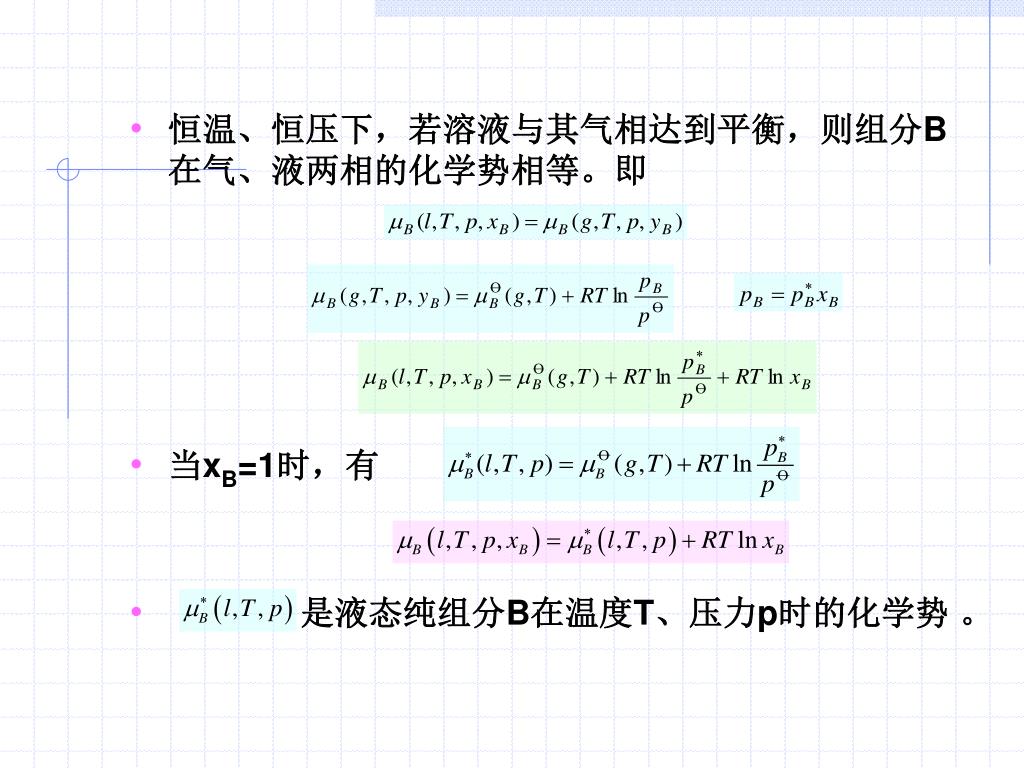 • 恒温、恒压下，若溶液与其气相达到平衡，则组分B
在气、液两相的化学势相等。即
μ_B(l,T,p,x_B)=μ_B(g,T,p,y_B)
μ_B(g,T,p,y_B)=μ_B^Θ(g,T)+RT ln p_B/p^Θ p_B=p_B^*x_B
μ_B(l,T,p,x_B)=μ_B^Θ(g,T)+RT ln p_B^*/p^Θ+RT ln x_B
• 当x_B=1时，有 μ_B^*(l,T,p)=μ_B^Θ(g,T)+RT ln p_B^*/p^Θ
μ_B(l,T,p,x_B)=μ_B^*(l,T,p)+RT ln x_B
• μ_B^*(l,T,p) 是液态纯组分B在温度T、压力p时的化学势 。